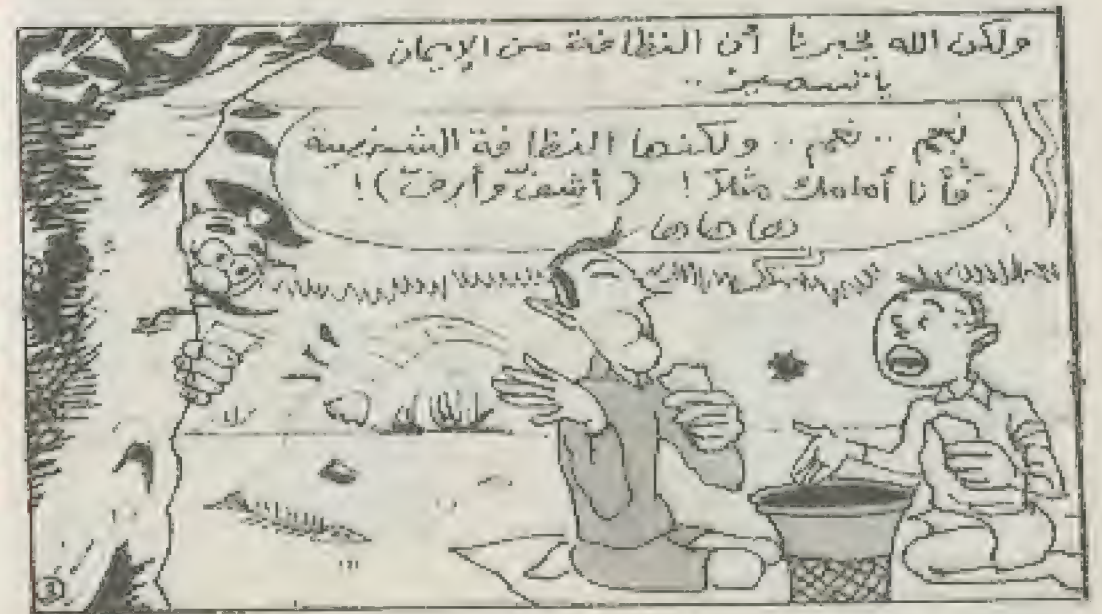 ولكن الله يخبرنا أن النظافة من الإيمان
يا سمير ..
نعم .. نعم .. ولكنها النظافة الشخصية
فأنا أمامك مثلاً ! ( أشفّ وأرفّ ) !
ها ها ها
3